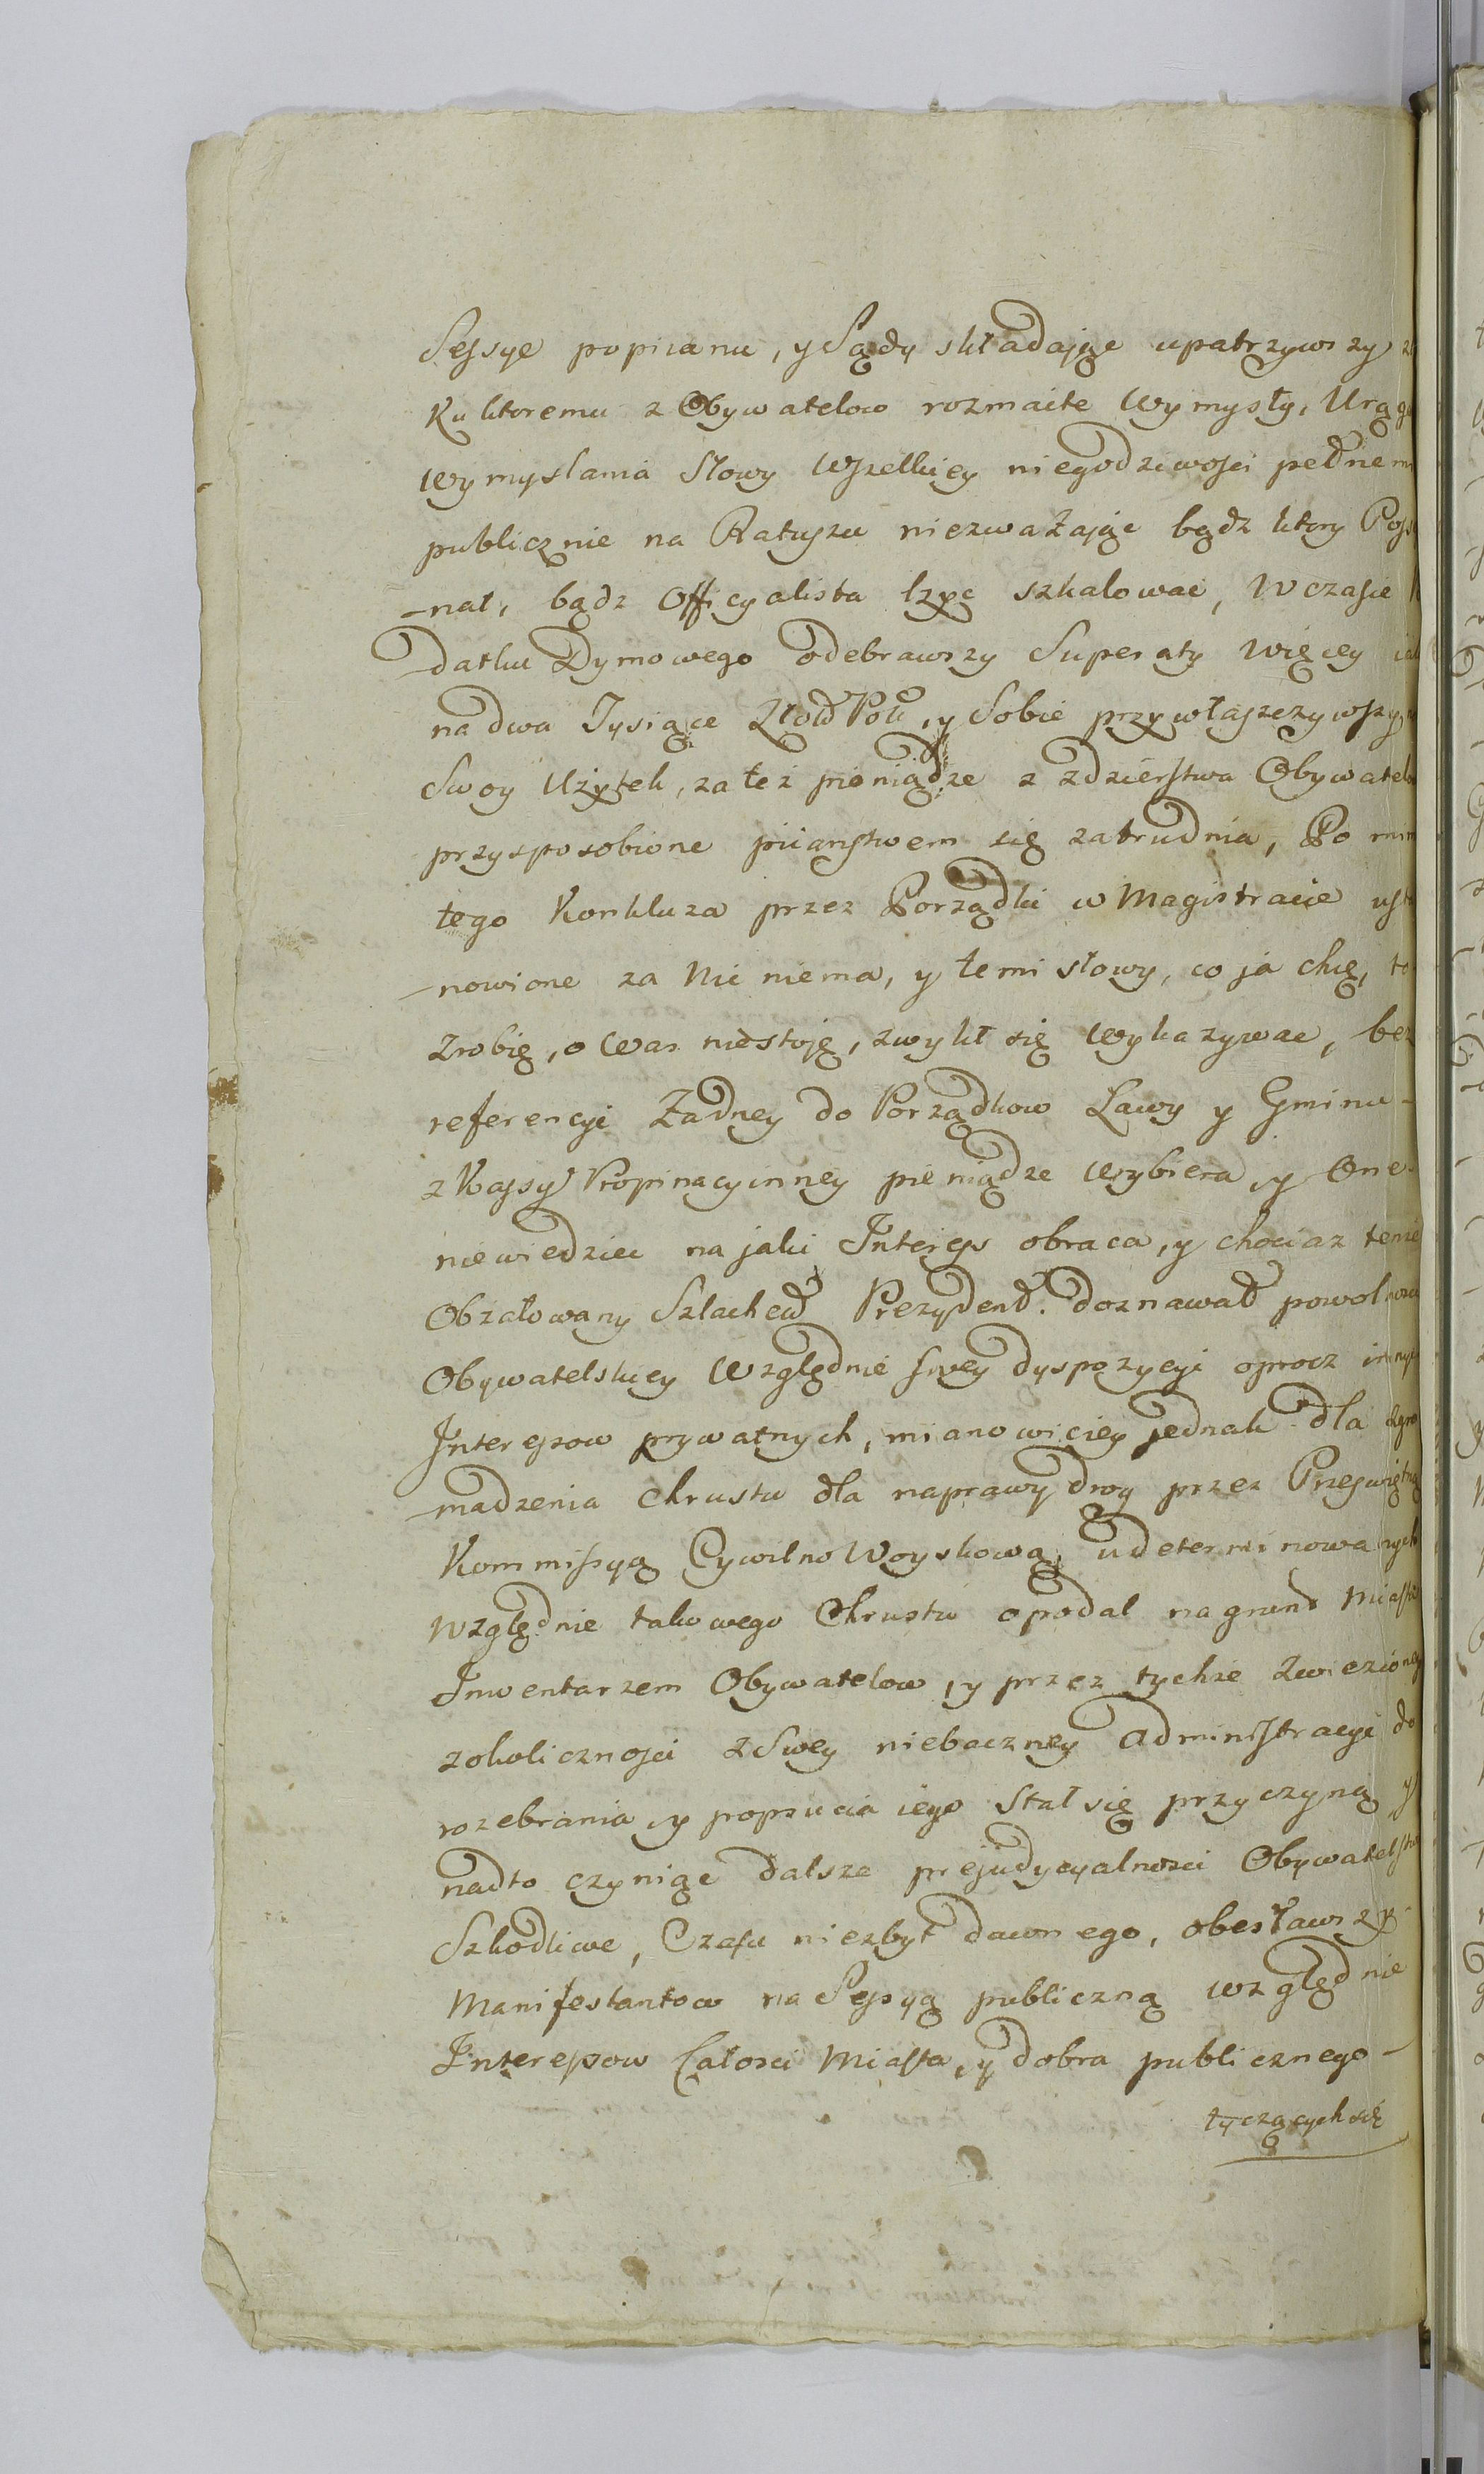 Sessye popiianu, y Sądy składaiąc upatrzywszy
Ku ktoremu z Obywatelow rozmaite Wymysły,
Wymyslania Słowy Wszelkiey niegodziwosci pełnem
publicznie na Ratuszu niezważaiąc bądz ktory
-nat, bądz Officyalista lzyc szkalowac, W czasie
-datku Dymowego odebrawszy Superaty więcey
na dwa Tysiące Złotd Pol:, y Sobie przywłaszczywszy
Swoy Użytek, za też pieniądze z zdzierstwa Obywatelo
przysposobione piianstwem się zatrudnia, Po mim
tego Konkluza przez Porządki w Magistracie ust
-nowione za Nic niema, y temi słowy, co ja chcę, to
Zrobię, o Was niestoję, zwykł się Wykazywac, bez
referencyi Żadney do Porządkow Ławy y Gminu-
z Kassy Propinacyinney pieniądze Wybiera, y One-
niewiedziec na jaki Interess obraca, y chociaz tenże
Obżałowany Szlachetd Prezydentd. doznawał powolnosci
Obywatelskiey Względnie swey dyspozycyi oprocz innych
Interessow prywatnych, mianowiciey jednak dla zgro
-madzenia chrustu dla naprawy drog przez Przeswiętną
Kommissyą Cywilno Woyskową, udeterminowanych
Względnie takowego Chrustu opodal na grunt Miasta
Inwentarzem Obywatelow, y przez tychże Zwiezioney
zokolicznosci z Swey niebaczney Administracyi do
rozebrania, y popsucia iego Stał się przyczyną y
nadto czyniąc dalsze prejudycyalnosci Obywatelstwu
Szkodliwe, Czasu niezbyt dawnego, obesławszy-
Manifestantow na Sessyą publiczną względnie
Interessow Całosci Miasta, y dobra publicznego-
tyczących się